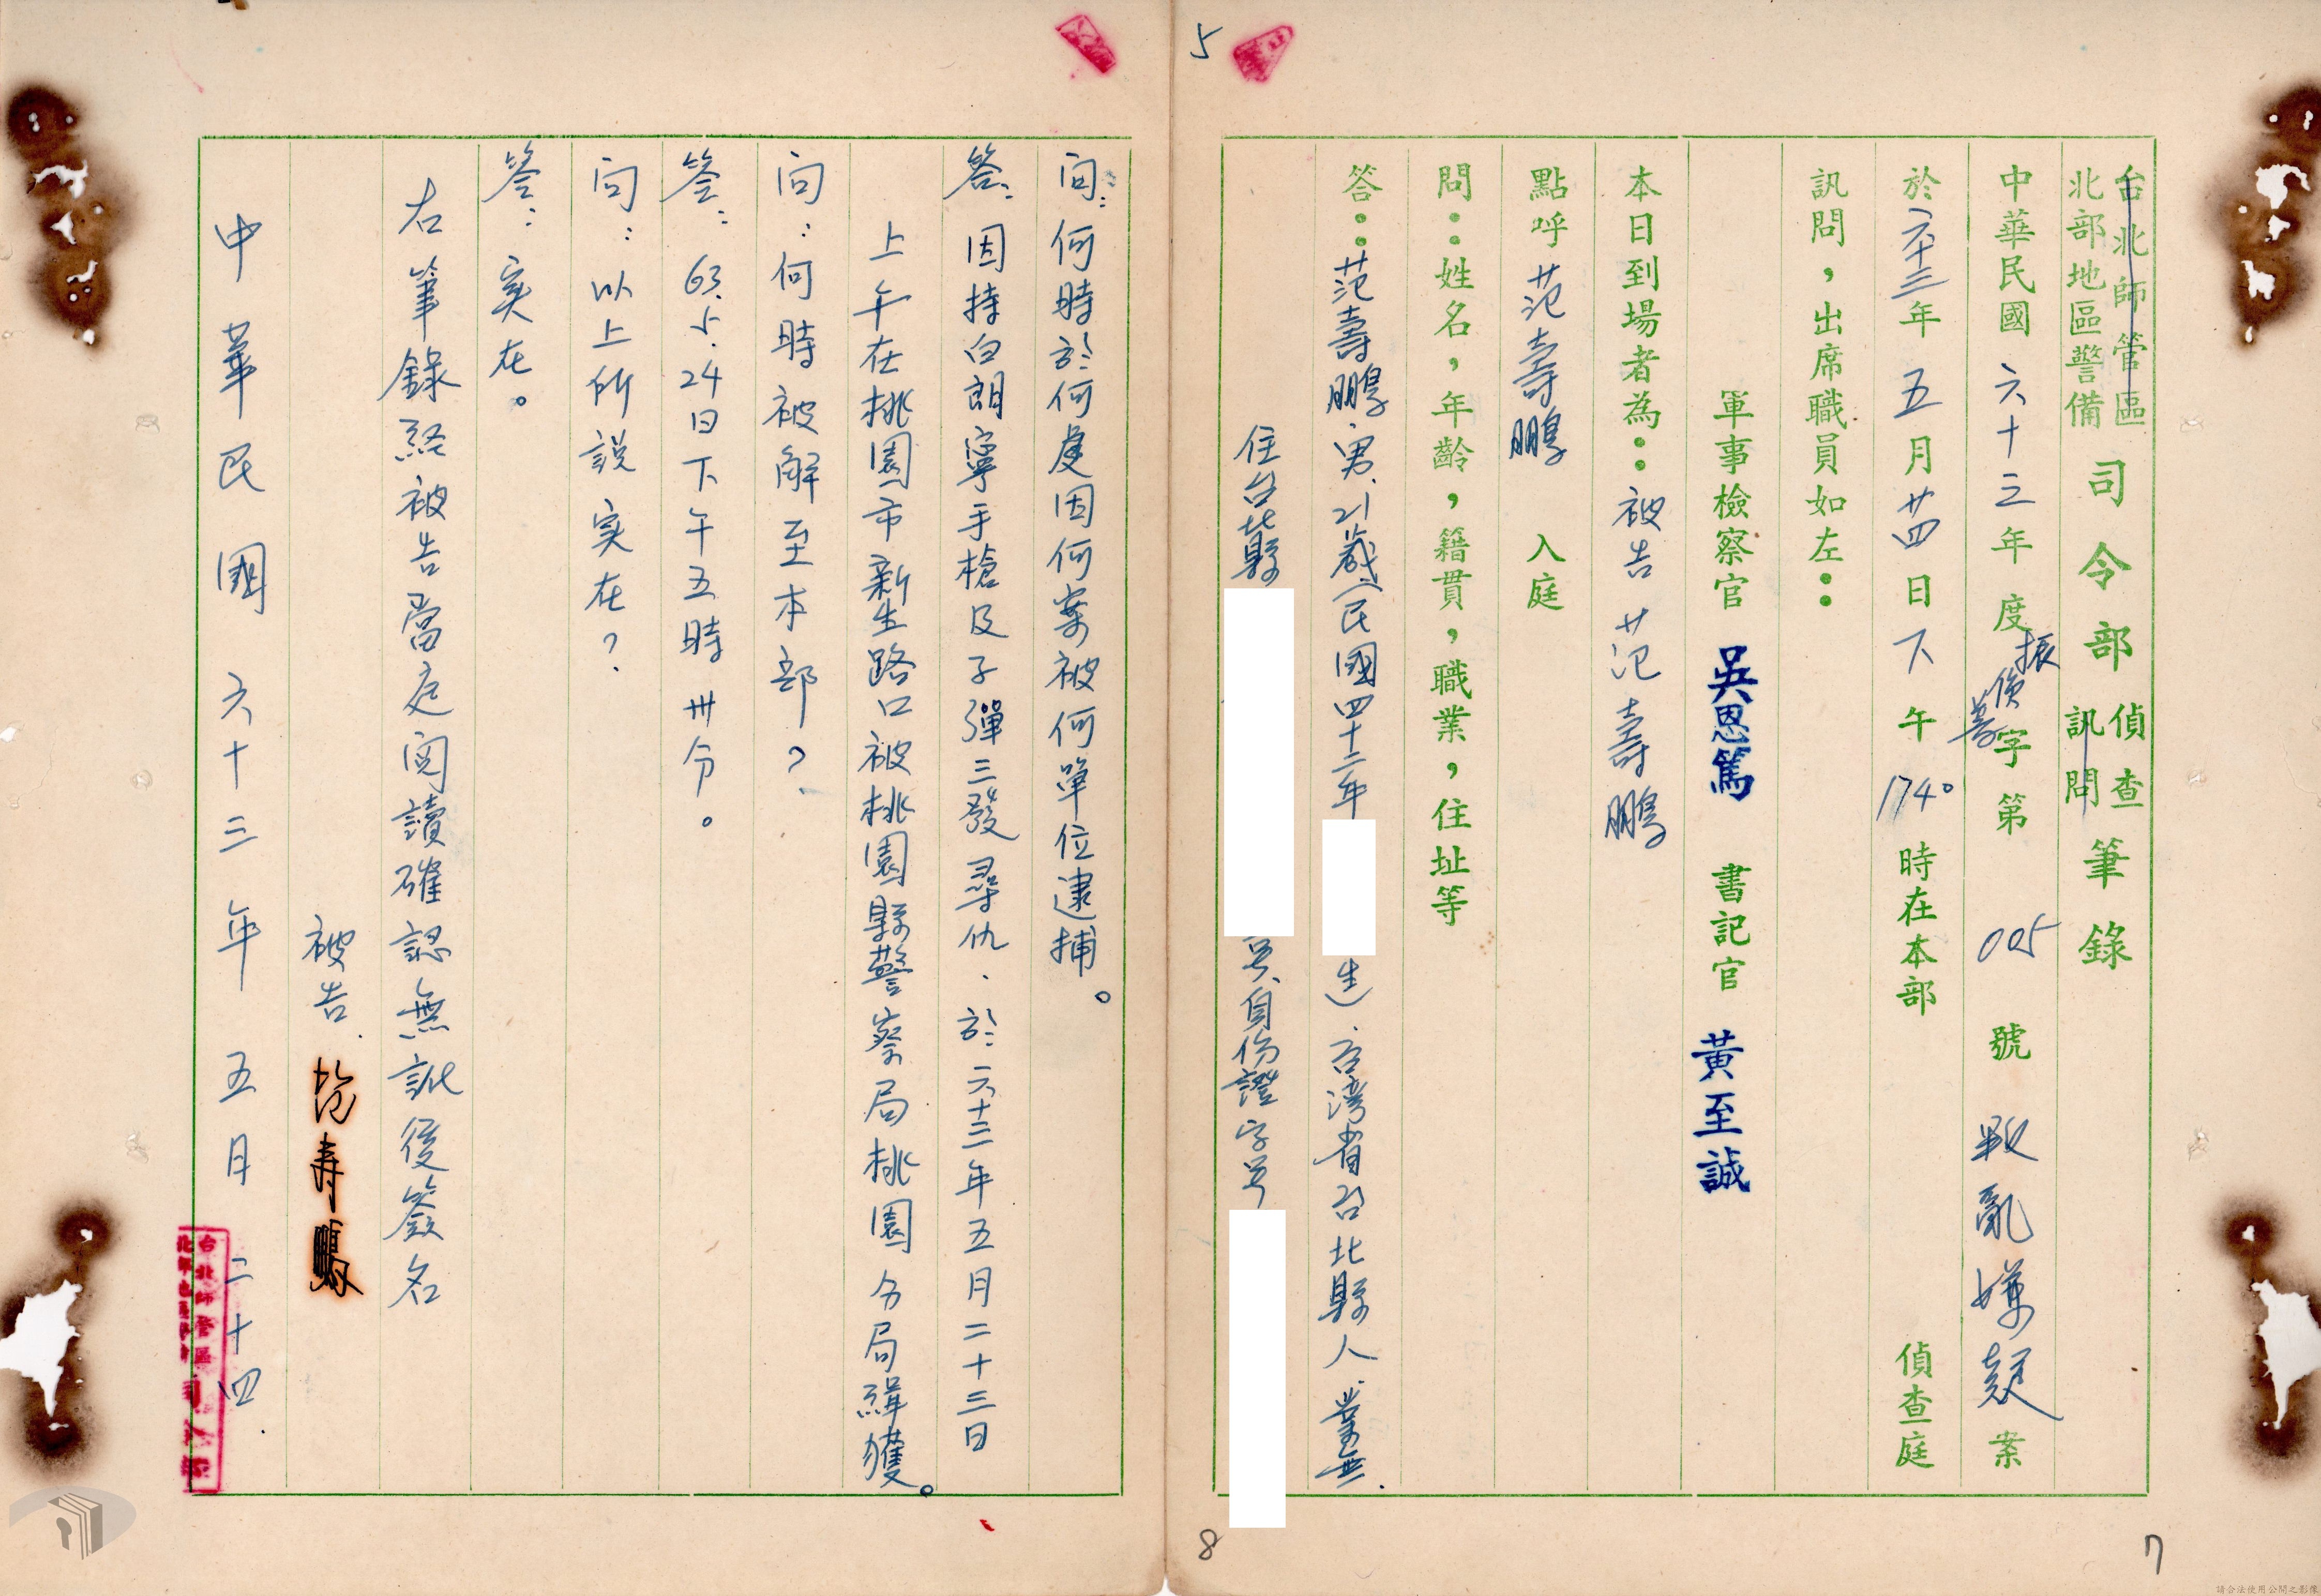 5
台北師管區
北部地區警備
司令部
偵查
訊問
筆錄
中華民國六十三年度振偵字第005號 叛亂嫌疑案
於六十三年五月廿四日下午1740時在本部 偵查庭
訊問，出席職員如左：
軍事檢察官 吳恩篤 書記官 黃至誠
本日到場者為：被告范壽鵬
點呼范壽鵬 入庭
問：姓名，年齡，籍貫，職業，住址等
答：范壽鵬、男、21歲（民國四十二年 生）、台灣省台北縣人、業無.
住台北縣 号、身份證字号
問：何時於何處因何案被何單位逮捕。
答：因持白朗寧手槍及子彈三發尋仇、於六十三年五月二十三日
上午在桃園市新生路口被桃園縣警察局桃園分局緝獲。
問：何時被解至本部？
答：63.5.24日下午五時卅分。
問：以上所說实在？
答：实在。
右筆錄経被告當庭閱讀確認無訛後簽名
被告. 范寿鵬
中華民國六十三年五月二十四.
台北師管區
司令部
8
7
請合法使用公開之影像